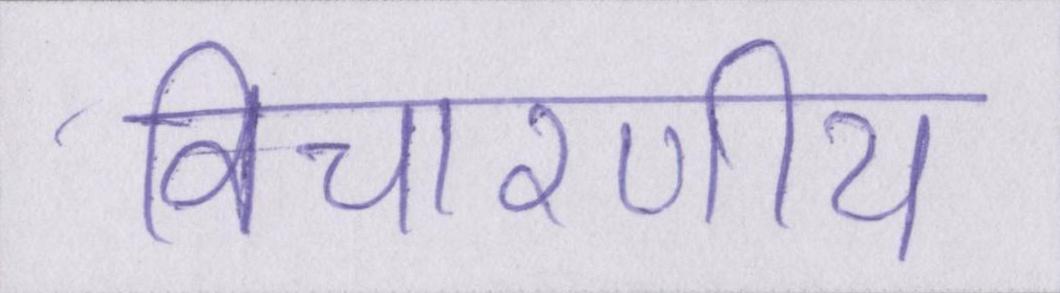 विचारणीय